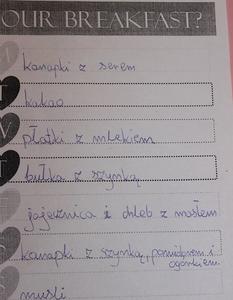 OUR BREAKFAST?
kanapki z serem
kakao
płatki z mlekiem
bułka z szynką
jajecznica i chleb z masłem
kanapki z szynką, pomidorem i
ogórkiem.
musli